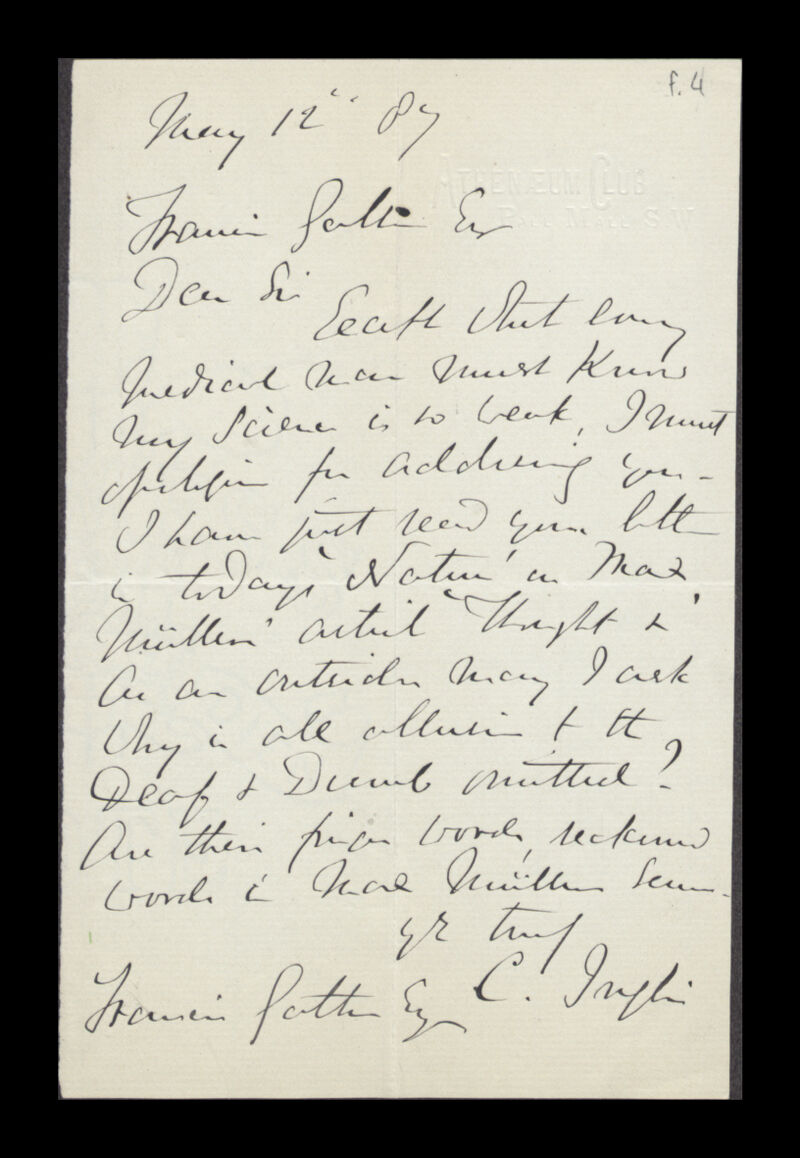 f.4
May 12th 87
ATHENÆUM CLUB
PALL MALL S.W.
Francis Galton Esq
Dear Sir
Except that every
Medical man must know
my Science is so weak, I must
apologise for addressing you -
I have just read your letter
in todays 'Nature' on Max
Müllers' article 'Thought &'
As an outsider may I ask
Why is all allusion to the
Deaf & Dumb omitted?
Are their finger words, reckoned
words in Max Müllers Sense -
yrs truly
C. Inglis
Francis Galton Esq